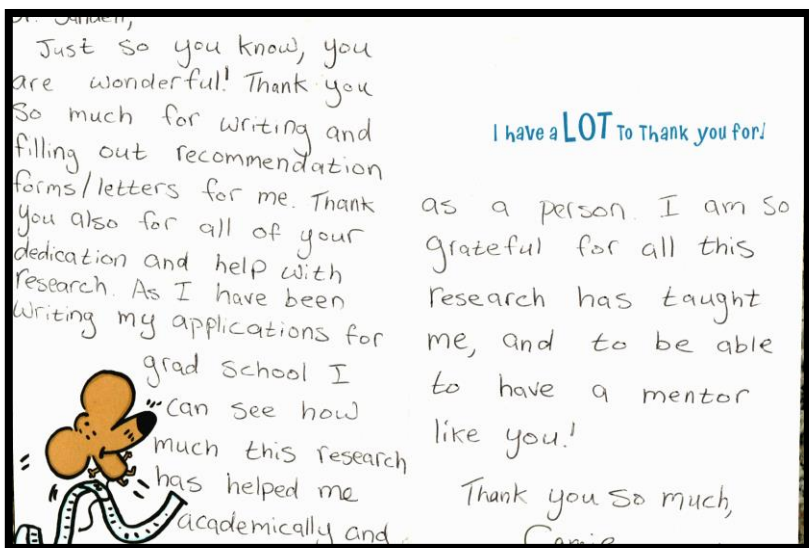 Just so you know, you
are wonderful! Thank you
So much for writing and
filling out recommendation
forms/letters for me. Thank
you also for all of your
dedication and help with
research. As I have been
writing my applications for
grad school I
can see how
much this research
has helped me
academically and
I have a LOT To Thank you for!
as a person. I am so
grateful for all this
research has taught
me, and to be able
to have a mentor
like you!
Thank you so much,